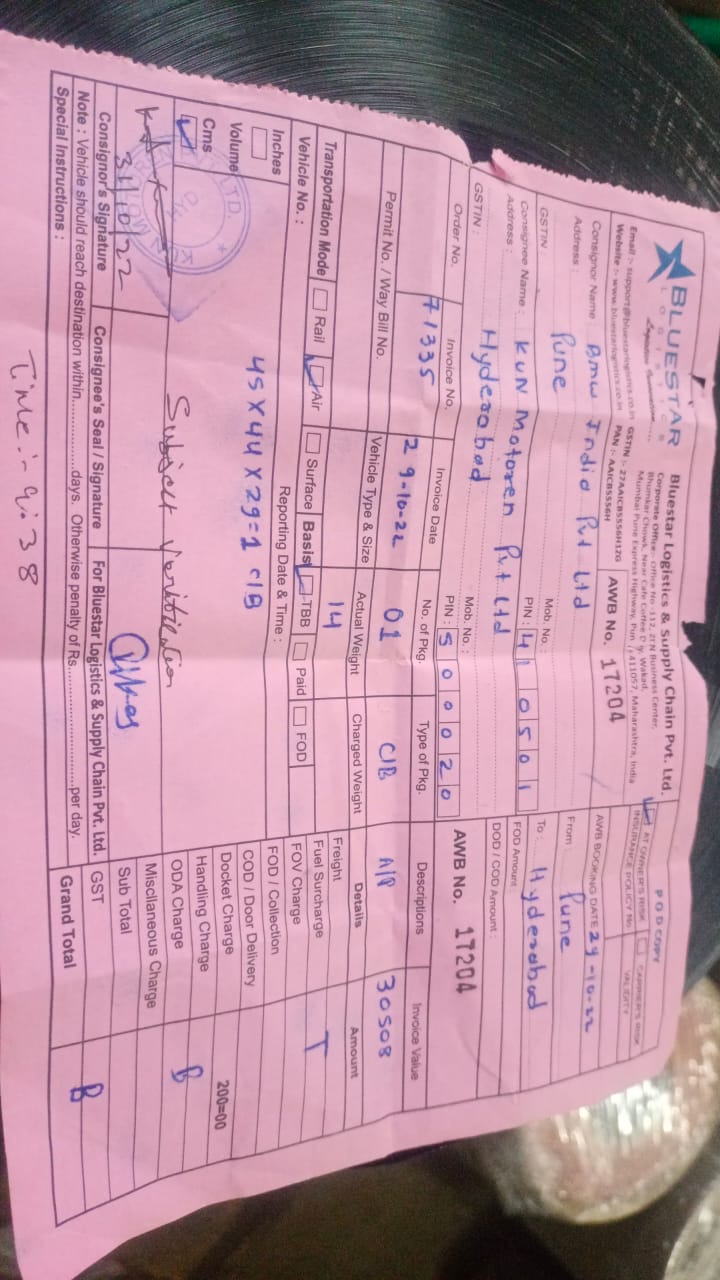 BLUESTAR
LOGISTICS
Logistics Innovation.....
Email :- support@bluestarlogistics.co.in
Website :- www.bluestarlogistics.co.in
Bluestar Logistics & Supply Chain Pvt. Ltd.
Corporate Office:- Office No -112, ZEN Business Center,
Bhumkar Chowk, Near Cafe Coffee Day, Wakad,
Mumbai Pune Express Highway, Pune - 411057, Maharashtra, India
GSTIN :- 27AAICB5556H1ZG
PAN :- AAICB5556H
AWB No. 17204
POD COPY
AT OWNER'S RISK CARRIER'S RISK
INSURANCE POLICY No VALIDITY
AWB BOOKING DATE 29-10-22
Consignor Name : Bmw India Pvt Ltd
Address : Pune
Mob. No. :
GSTIN : PIN : 410501
From : Pune
To : Hyderabad
Consignee Name : KUN Motoren Pvt Ltd
Address : Hyderabad
Mob. No. :
GSTIN : PIN : 500020
FOD Amount :
DOD / COD Amount :
AWB No. 17204
Order No. Invoice No. Invoice Date No. of Pkg. Type of Pkg. Descriptions Invoice Value
71335 29-10-22 01 C/B A/P 30508
Permit No. / Way Bill No. Vehicle Type & Size Actual Weight Charged Weight Details Amount
14
Transportation Mode Rail Air Surface Basis TBB Paid FOD
Vehicle No. : Reporting Date & Time :
Inches
Volume
Cms
45 X 44 X 29=1 C/B
Freight
Fuel Surcharge T
FOV Charge
FOD / Collection
COD / Door Delivery
Docket Charge 200=00
Handling Charge
ODA Charge B
Miscllaneous Charge
Sub Total
GST
Grand Total B
Subject Verification
31/10/22
Consignor's Signature Consignee's Seal / Signature For Bluestar Logistics & Supply Chain Pvt. Ltd.
Note : Vehicle should reach destination within................days. Otherwise penalty of Rs............................per day.
Special Instructions :
Time :- 9:38